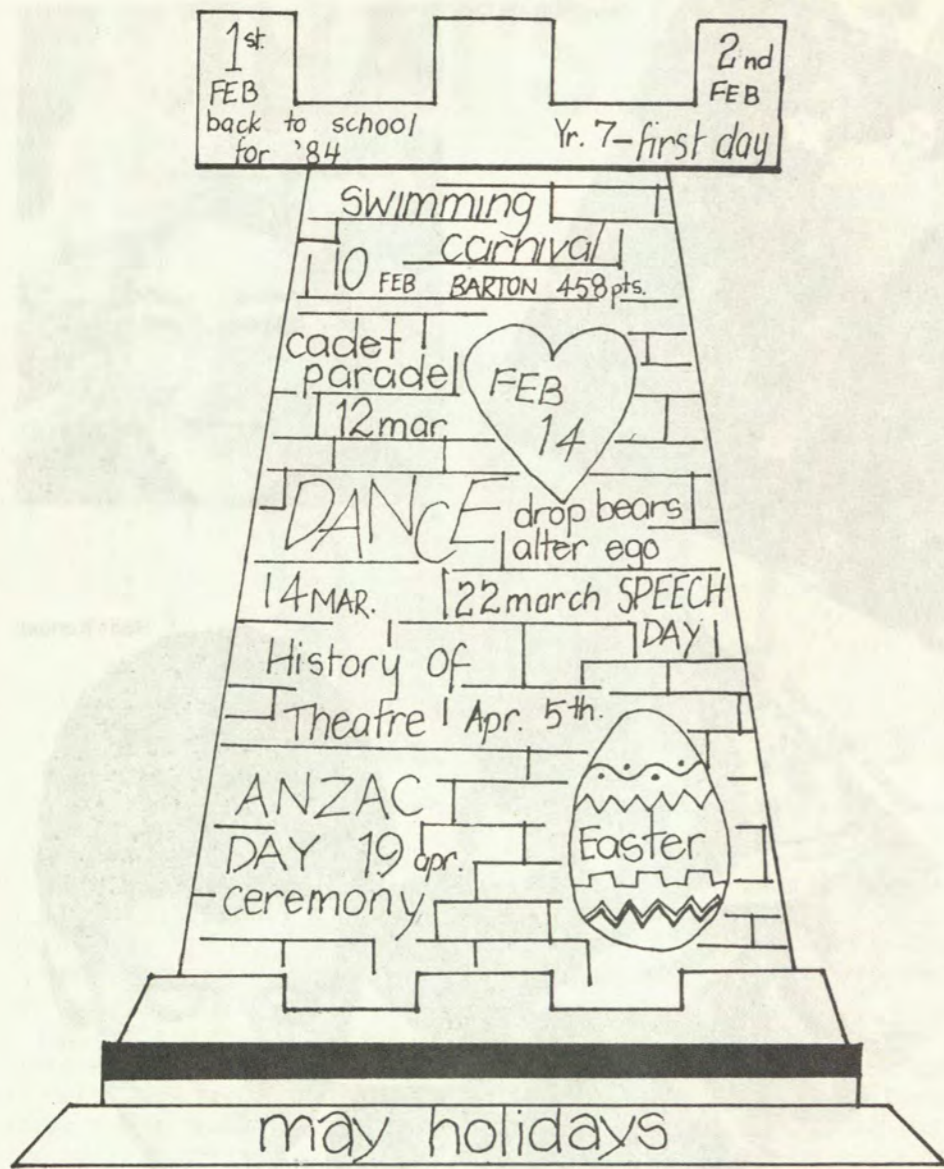 1st
FEB
back to school
for '84
2nd
FEB
Yr. 7 - first day
swimming
carnival
10 FEB BARTON 458 pts.
cadet
parade
12 mar
FEB
14
DANCE
drop bears
alter ego
14 MAR.
22 march SPEECH
DAY
History of
Theatre Apr. 5th.
ANZAC
DAY 19 apr.
ceremony
Easter
may holidays